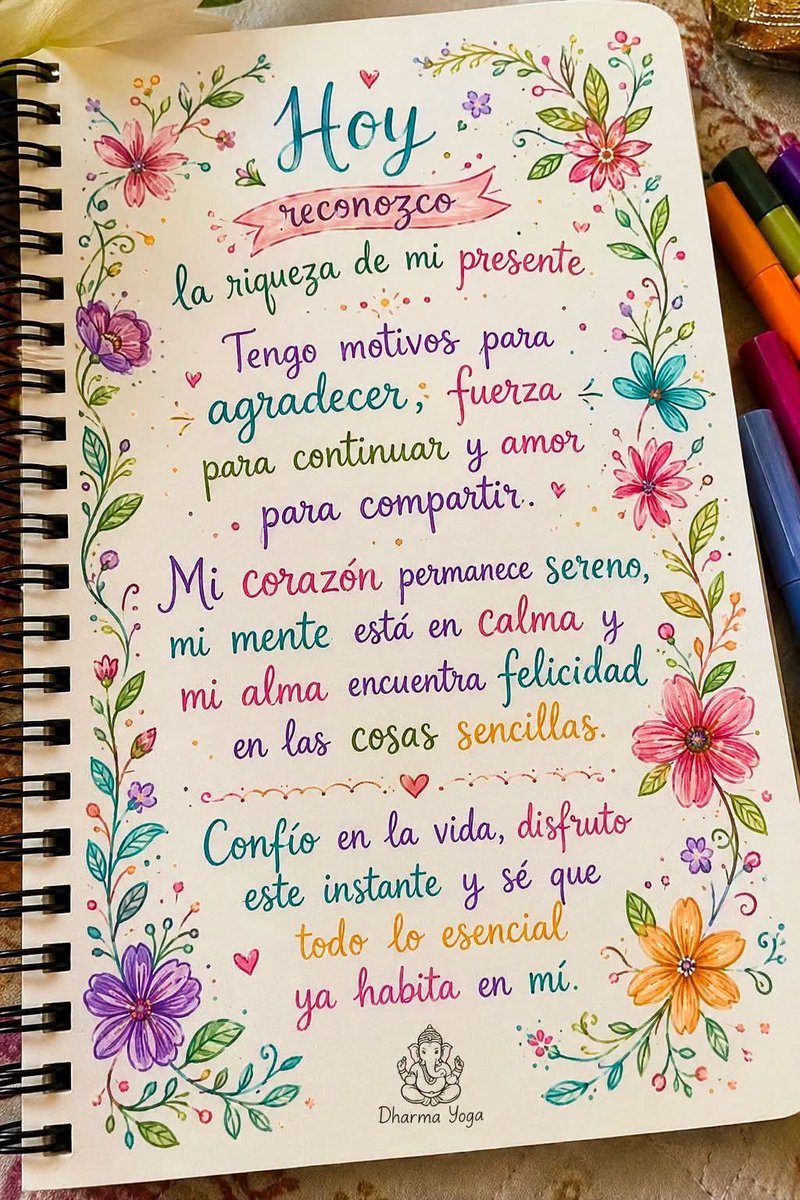 Hoy
reconozco
la riqueza de mi presente
Tengo motivos para
agradecer, fuerza
para continuar y amor
para compartir.
Mi corazón permanece sereno,
mi mente está en calma y
mi alma encuentra felicidad
en las cosas sencillas.
Confío en la vida, disfruto
este instante y sé que
todo lo esencial
ya habita en mí.
Dharma Yoga